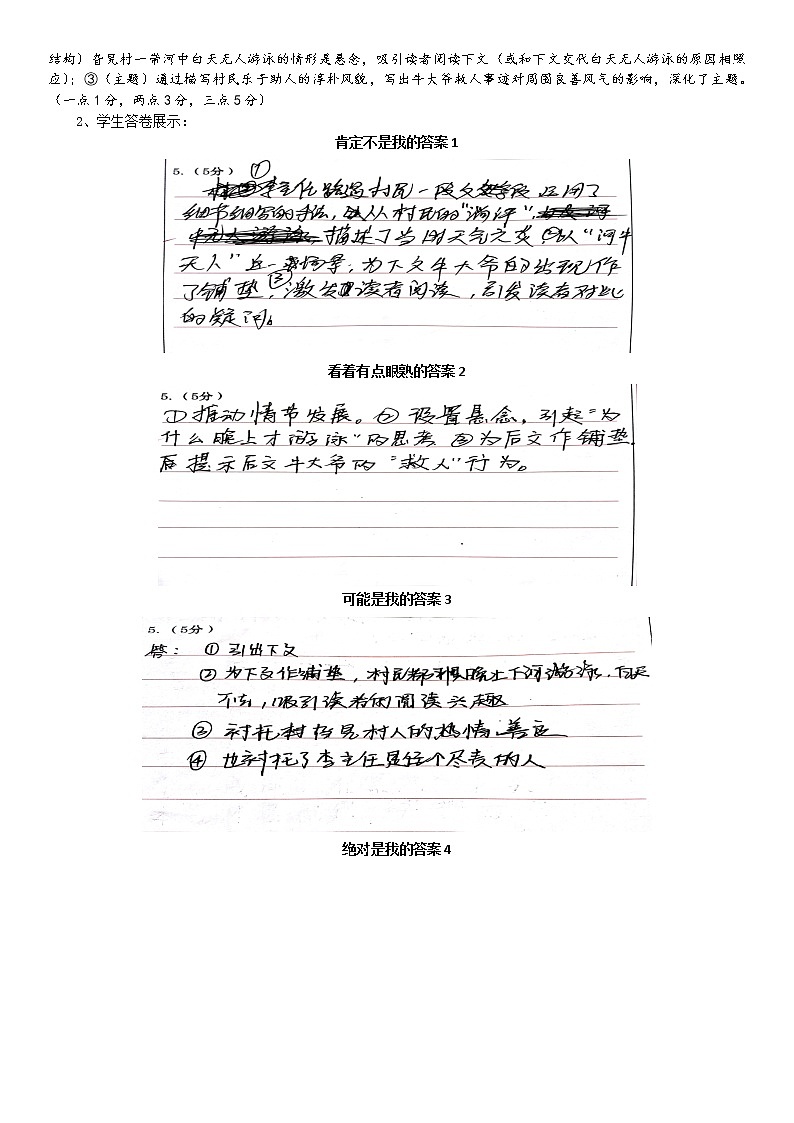 结构）旮旯村一带河中白天无人游泳的情形是悬念，吸引读者阅读下文（或和下文交代白天无人游泳的原因相照
应）；③（主题）通过描写村民乐于助人的淳朴风貌，写出牛大爷救人事迹对周围良善风气的影响，深化了主题。
（一点1分，两点3分，三点5分）
2、学生答卷展示：
肯定不是我的答案1
5.（5分）①
李主任路遇村民一段文字 运用了
细节描写的手法，从村民的
描述了当时天气之 ②以“河中
无人”这一场景，为下文牛大爷的出现作
了铺垫，③激发读者阅读，引发读者对此
的疑问。
看着有点眼熟的答案2
5.（5分）
①推动情节发展。②设置悬念，引起“为
什么晚上才游泳”的思考 ③为后文作铺垫.
提示后文牛大爷的“救人”行为。
可能是我的答案3
5.（5分）
答：①引出下文
②为下文作铺垫，村民都晚上下河游泳，白天
不去，吸引读者的阅读兴趣
③衬托村人的热情善良
④也衬托了李主任是个尽责的人
绝对是我的答案4